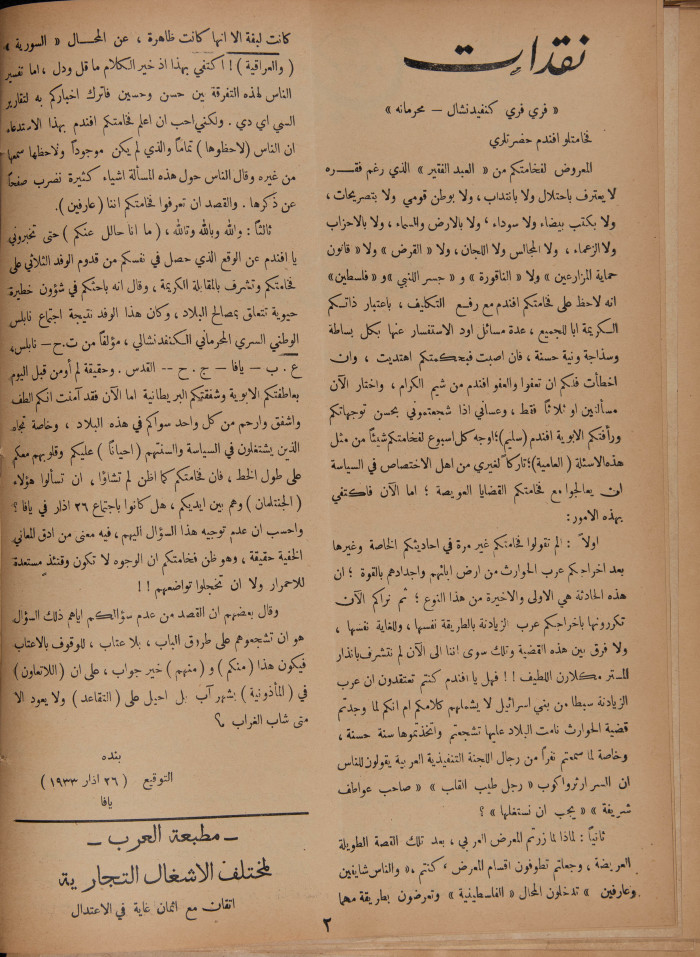 نقدات
« فري فري كنفيدنشال — محرمانه »
فخامتلو افندم حضرتلري
المعروض لفخامتكم من « العبد الفقير » الذي رغم فقـــره
لا يعترف باحتلال ولا بانتداب ، ولا بوطن قومي ولا بتصريحات ،
ولا بكتب بيضاء ولا سوداء ، ولا بالارض والسماء ، ولا بالاحزاب
ولا الزعماء ، ولا المجالس ولا اللجان، ولا « القرض » ولا « قانون
حماية المزارعين » ولا « الناقورة » و « جسر اللنبي » و « فلسطين»
انه لاحظ على فخامتكم افندم مع رفـع التكاليف ، باعتبار ذاتـكم
الكريمة ابا للجميع ، عدة مسائل اود الاستفسار عنها بكل بساطة
وسذاجة ونية حسنة ، فان اصبت فبحكمتكم اهتديت ، وان
اخطأت فلكم ان تعفوا والعفو افندم من شيم الكرام ، واختار الآن
مسألتين او ثلاثاً فقط ، وعساني اذا شجعتموني بحسن توجهاتكم
ورأفتكم الابوية افندم (سليم)؛ اوجه كل اسبوع لفخامتكم شيئاً من مثل
هذه الاسئلة ( العامية)؛ تاركاً لغيري من اهل الاختصاص في السياسة
ان يعالجوا مع فخامتكم القضايا العويصة ؛ اما الآن فاكتفي
بهذه الامور:
اولاً : الم تقولوا فخامتكم غير مرة في احاديثكم الخاصة وغيرها
بعد اخراجكم عرب الحوارث من ارض ابائهم واجدادهم بالقوة ؛ ان
هذه الحادثة هي الاولى والاخيرة من هذا النوع ؛ ثم نراكم الآن
تكررونها باخراجكم عرب الزيادنة بالطريقة نفسها ، وللغاية نفسها ،
ولا فرق بين هذه القضية وتلك سوى اننا الى الآن لم نتشرف بانذار
المستر مكلارن اللطيف !! فهل يا افندم كنتم تعتقدون ان عرب
الزيادنة سبطا من بني اسرائيل لا يشملهم كلامكم ام انكم لما وجدتم
قضية الحوارث نامت البلاد عليها تشجعتم واتخذتموها سنة حسنة ،
وخاصة لما سمعتم نفراً من رجال اللجنة التنفيذية العربية يقولون للناس
ان السر ارثرواكوب « رجل طيب القلب » « صاحب عواطف
شريفة » « يجب ان نستغلها » ؟
ثانياً : لماذا لما زرتم المعرض العربي ، بعد تلك القصة الطويلة
العريضة ، وجعلتم تطوفون اقسام المعرض ، كنتم ، « والناس شايفين
وعارفين » تدخلون المحال « الفلسطينية » وتعرضون بطريقة مهما
كانت لبقة الا انها كانت ظاهرة ، عن المحـال « السورية »
( والعراقية ) ! اكتفي بهذا اذ خير الكلام ما قل ودل ، اما تفسير
الناس لهذه التفرقة بين حسن وحسين فاترك اخباركم به لتقارير
السي اي دي . ولكني احب ان اعلم فخامتكم افندم بهذا الاستدعاء
ان الناس (لاحظوها ) تماماً والذي لم يكن موجوداً ولاحظها سمعها
من غيره وقال الناس حول هذه المسألة اشياء كثيرة نضرب صفحاً
عن ذكرها . والقصد ان تعرفوا فخامتكم اننا (عارفين ).
ثالثاً : والله وبالله وتالله ، ( ما انا حالل عنكم ) حتى تخبروني
يا افندم عن الوقع الذي حصل في نفسكم من قدوم الوفد الثلاثي على
فخامتكم وتشرف بالمقابلة الكريمة ، وقال انه باحثكم في شؤون خطيرة
حيوية تتعلق بمصالح البلاد ، وكان هذا الوفد نتيجة اجتماع نابلس
الوطني السري المحرماني الكنفدنشالي ، مؤلفاً من ت.ح – نابلس،
ع . ب – يافا – ج . ح -- القدس . وحقيقة لم أومن قبل اليوم
بعاطفتكم الابوية وشفقتكم البريطانية اما الآن فقد آمنت انكم الطف
واشفق وارحم من كل واحد سواكم في هذه البلاد ، وخاصة تجاه
الذين يشتغلون في السياسة والسنتهم ( احياناً ) عليكم وقلوبهم معكم
على طول الخط ، فان فخامتكم كما اظن لم تشاؤا ، ان تسألوا هؤلاء
( الجنتلمان ) وهم بين ايديكم ، هل كانوا باجتماع ٢٦ اذار في يافا ؟
واحسب ان عدم توجيه هذا السؤال اليهم ، فيه معنى من ادق المعاني
الخفية حقيقة ، وهو ظن فخامتكم ان الوجوه لا تكون وقتئذ مستعدة
للاحمرار ولا ان تخجلوا تواضعهم !!
وقال بعضهم ان القصد من عدم سؤالكم اياهم ذلك السؤال
هو ان تشجعوهم على طروق الباب ، بلا عتاب ، للوقوف بالاعتاب
فيكون هذا ( منكم ) و ( منهم ) خير جواب ، على ان ( اللاتعاون )
في ( المأذونية ) بشهر آب بل احيل على ( التقاعد ) ولا يعود الا
متى شاب الغراب ؟
بنده
التوقيع ( ٢٦ اذار ١٩٣٣ )
يافا
– مطبعة العرب –
لمختلف الاشغال التجارية
اتقان مع اثمان غاية في الاعتدال
٢